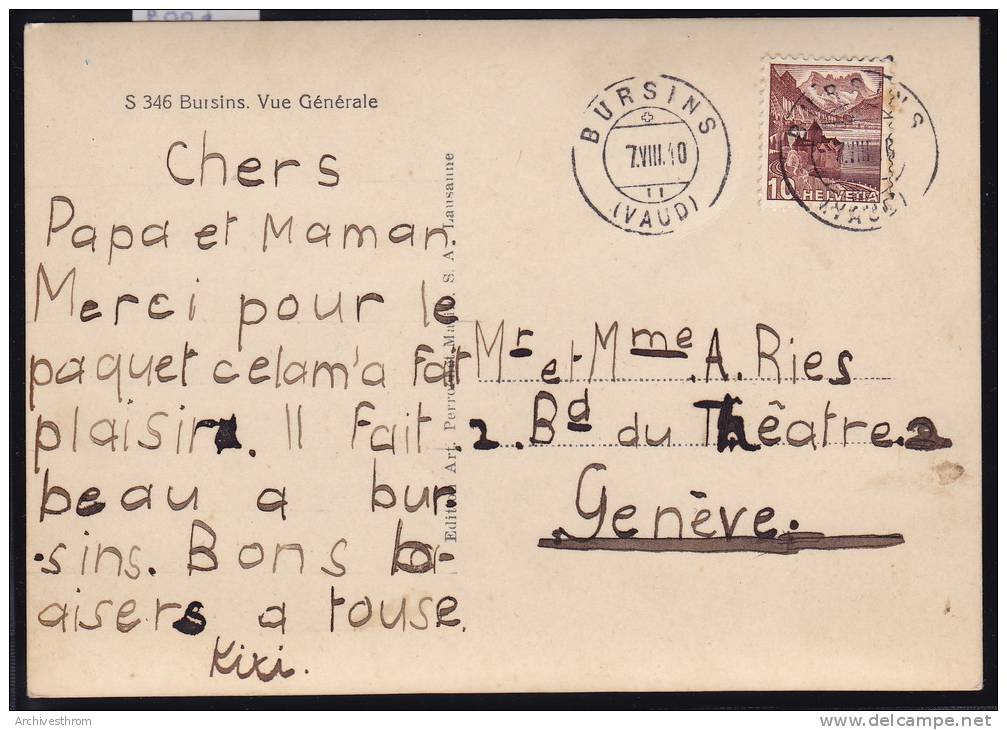 S 346 Bursins. Vue Générale
Chers
Papa et Maman.
Merci pour le
paquet celam'a fait
plaisir. Il Fait
beau a bur
-sins. Bons ba-
aisers a touse.
Kiki.
Edition Art. Perrochet-Matile S. A. Lausanne
BURSINS
7.VIII.40
11
(VAUD)
BURSINS
VIII
(VAUD)
10 HELVETIA
Mr et Mme A. Ries
2. Bd du Théâtre 2
Genève.
Archivesthrom
www.delcampe.net